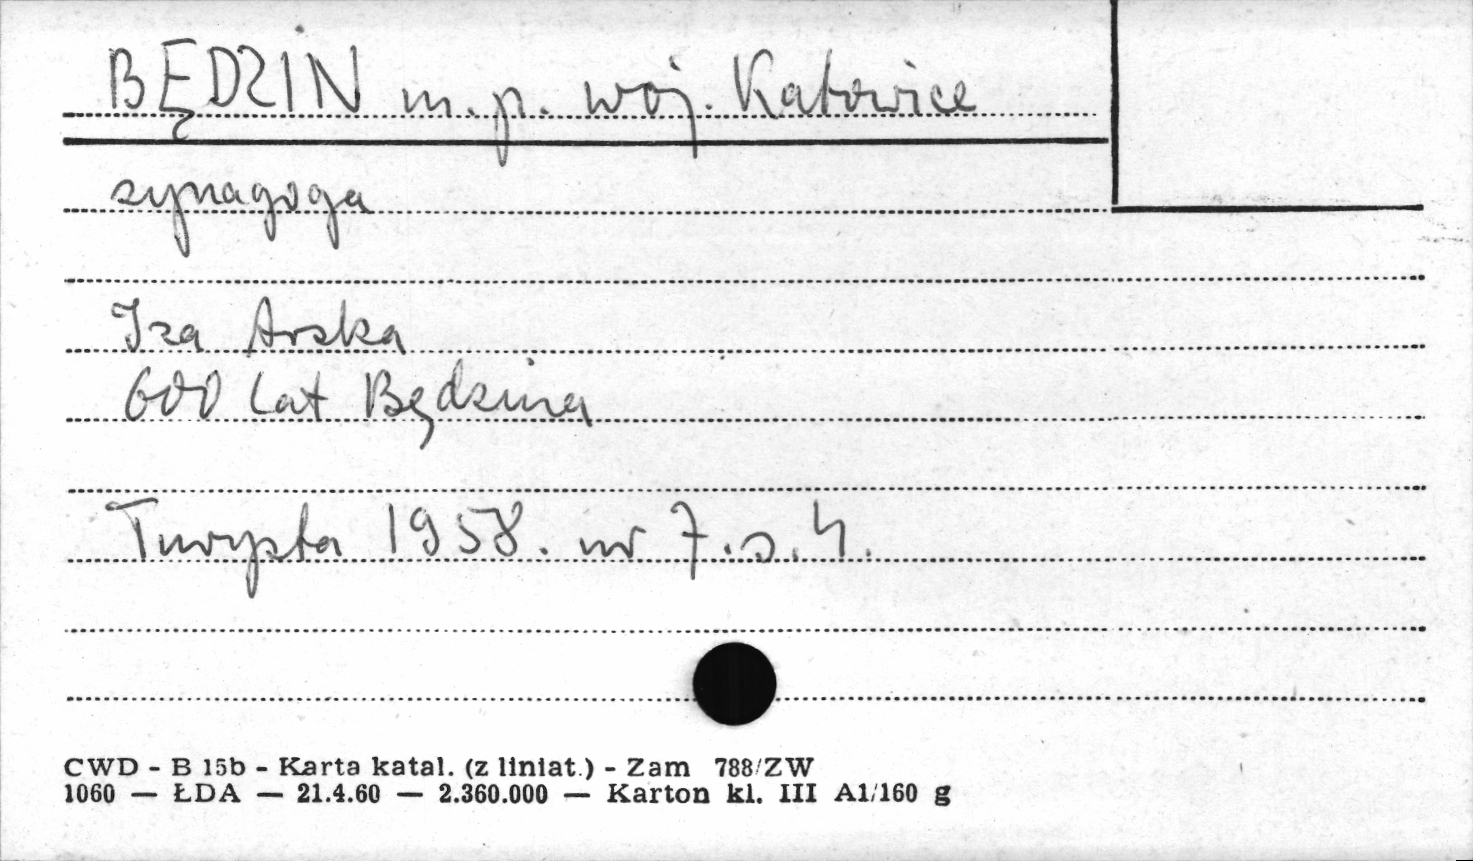 BĘDZIN m. p. woj. Katowice
synagoga
Iza Arska
600 lat Będzina
Turysta 1958. nr 7. s. 4.
CWD - B 15b - Karta katal. (z liniat.) - Zam 788/ZW
1060 — ŁDA — 21.4.60 — 2.360.000 — Karton kl. III A1/160 g